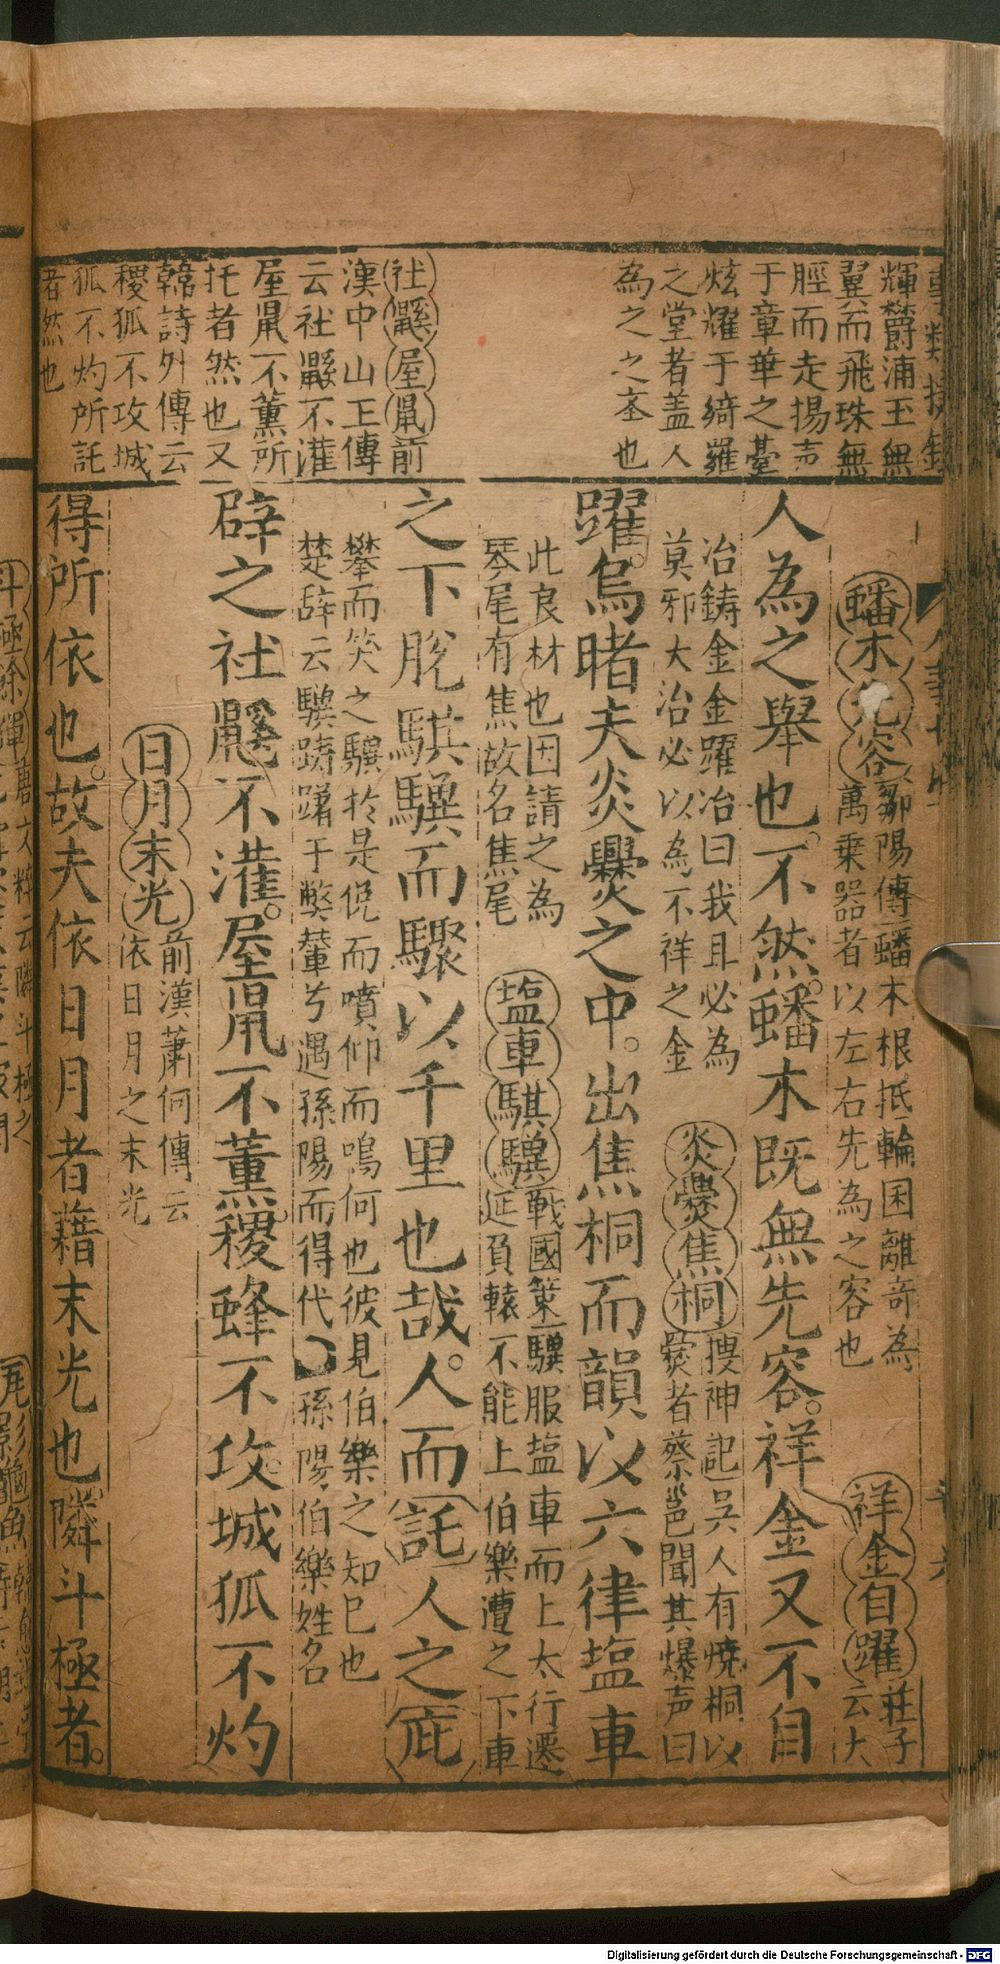 輝欝浦玉無
翼而飛珠無
脛而走揚声
于章華之䑓
炫耀于綺羅
之堂者蓋人
為之之㚑也
社鼷屋鼠前
漢中山王傳
云社鼷不灌
屋鼠不薰所
托者然也又
韓詩外傳云
稷狐不攻城
狐不灼所託
者然也
蟠木先容鄒陽傳蟠木根抵輪囷離奇為
萬乗器者以左右先為之容也
祥金自躍莊子
云大
人為之舉也。不然。蟠木既無先容。祥金又不自
冶鋳金金躍冶曰我且必為
莫邪大冶必以為不祥之金
炎爨焦桐捜神記吳人有焼桐以
爨者蔡邕聞其爆声曰
躍。烏睹夫炎爨之中。出焦桐而韻以六律塩車
此良材也因請之為
琴尾有焦故名焦尾
塩車騏驥戰國䇿驥服塩車而上太行遷
延負轅不能上伯樂遭之下車
之下脫騏驥而驟以千里也哉。人而託人之庇
攀而笑之驥於是俛而噴仰而鳴何也彼見伯樂之知已也
楚辞云驥躊躇于弊輂兮遇孫陽而得代
孫陽伯樂姓名
辟之社鼷不灌。屋鼠不薰。稷蜂不攻。城狐不灼
日月末光前漢蕭何傳云
依日月之末光
得所依也。故夫依日月者藉末光也隣斗極者。
Digitalisierung gefördert durch die Deutsche Forschungsgemeinschaft - DFG